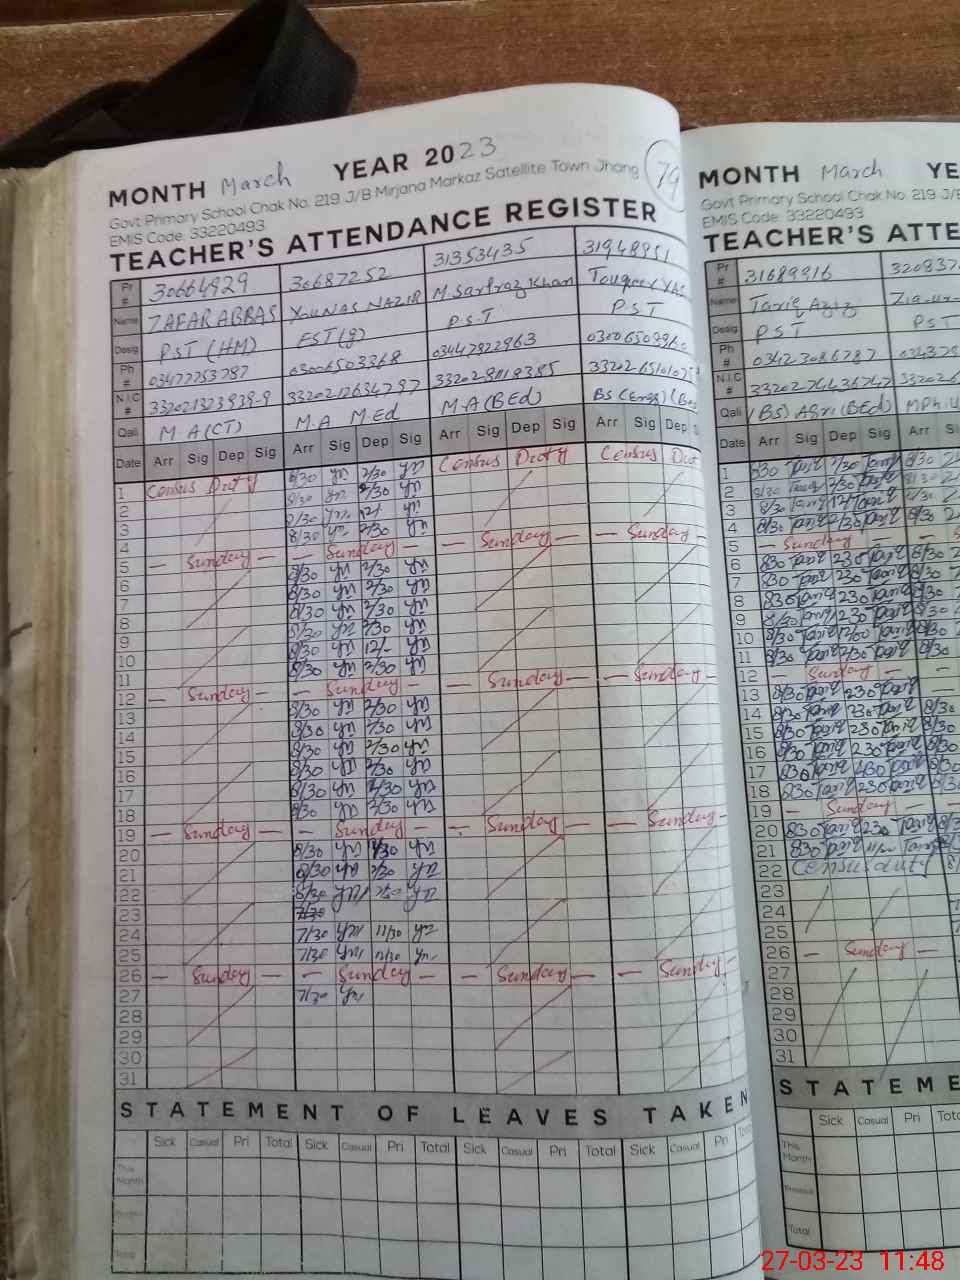 MONTH March YEAR 2023
79
Govt Primary School Chak No. 219 J/B Mirjana Markaz Satellite Town Jhang
EMIS Code: 33220493
TEACHER'S ATTENDANCE REGISTER
Pr # 30664929 30687252 31353435 31948951
Name ZAFAR ABBAS YOUNAS NAZIR M.Sarfraz Khan
Desig PST (HM) EST(g) P.S.T P.S.T
Ph # 03477253787 03006503368 03447922963
N.I.C # 33202 33202
Qali M.A (CT) M.A M.Ed M.A (BEd)
Date Arr Sig Dep Sig Arr Sig Dep Sig Arr Sig Dep Sig Arr Sig Dep
1 Census Duty 8/30 2/30 Census Duty Census Dut
2 8/30 2/30
3 8/30 12/
4 8/30 2/30
5 — Sunday — — Sunday — — Sunday — — Sunday —
6 8/30 2/30
7 8/30 2/30
8 8/30 2/30
9 8/30 2/30
10 8/30 12/-
11 8/30 2/30
12 — Sunday — — Sunday — — Sunday — — Sunday —
13 8/30 2/30
14 8/30 2/30
15 8/30 2/30
16 8/30 2/30
17 8/30 2/30
18 8/30 2/30
19 — Sunday — — Sunday — — Sunday — — Sunday —
20 8/30
21 8/30 2/30
22 8/30 2/30
23 7/30
24 7/30 11/30
25 7/30
26 — Sunday — — Sunday — — Sunday — — Sunday —
27 7/30
28
29
30
31
STATEMENT OF LEAVES TAKEN
Sick Casual Pri Total Sick Casual Pri Total Sick Casual Pri Total Sick Casual Pri
This Month
Previous
Total
MONTH March YE
Govt Primary School Chak No. 219 J/B
EMIS Code: 33220493
TEACHER'S ATTE
Pr # 31689916
Name Tariq Aziz Zia-ur-
Desig PST PST
Ph # 03423086787
N.I.C #
Qali (BS) Agri (BEd) MPhil
Date Arr Sig Dep Sig Arr
1 830 Tariq 2/30 Tariq 8/30
2 8/30 Tariq 2/30 Tariq 8/30
3 8/30 Tariq 12/ Tariq 8/30
4 8/30 Tariq 2/30 Tariq 8/30
5 — Sunday —
6 830 Tariq 230 Tariq 8/30
7 830 Tariq 230 Tariq 8/30
8 830 Tariq 230 Tariq 8/30
9 8/30 Tariq 230 Tariq 8/30
10 8/30 Tariq 12/00 Tariq 8/30
11 8/30 Tariq 2/30 Tariq 8/30
12 — Sunday —
13 8/30 Tariq 230 Tariq
14 8/30 Tariq 230 Tariq 8/30
15 8/30 Tariq 230 Tariq 8/30
16 8/30 Tariq 230 Tariq 8/30
17 830 Tariq 230 Tariq 8/30
18 830 Tariq 230 Tariq 8/30
19 — Sunday —
20 830 Tariq 230 Tariq
21 830 Tariq Tariq
22 Census duty
23
24
25
26 — Sunday —
27
28
29
30
31
STATEME
Sick Casual Pri
This Month
Previous
Total
27-03-23 11:48